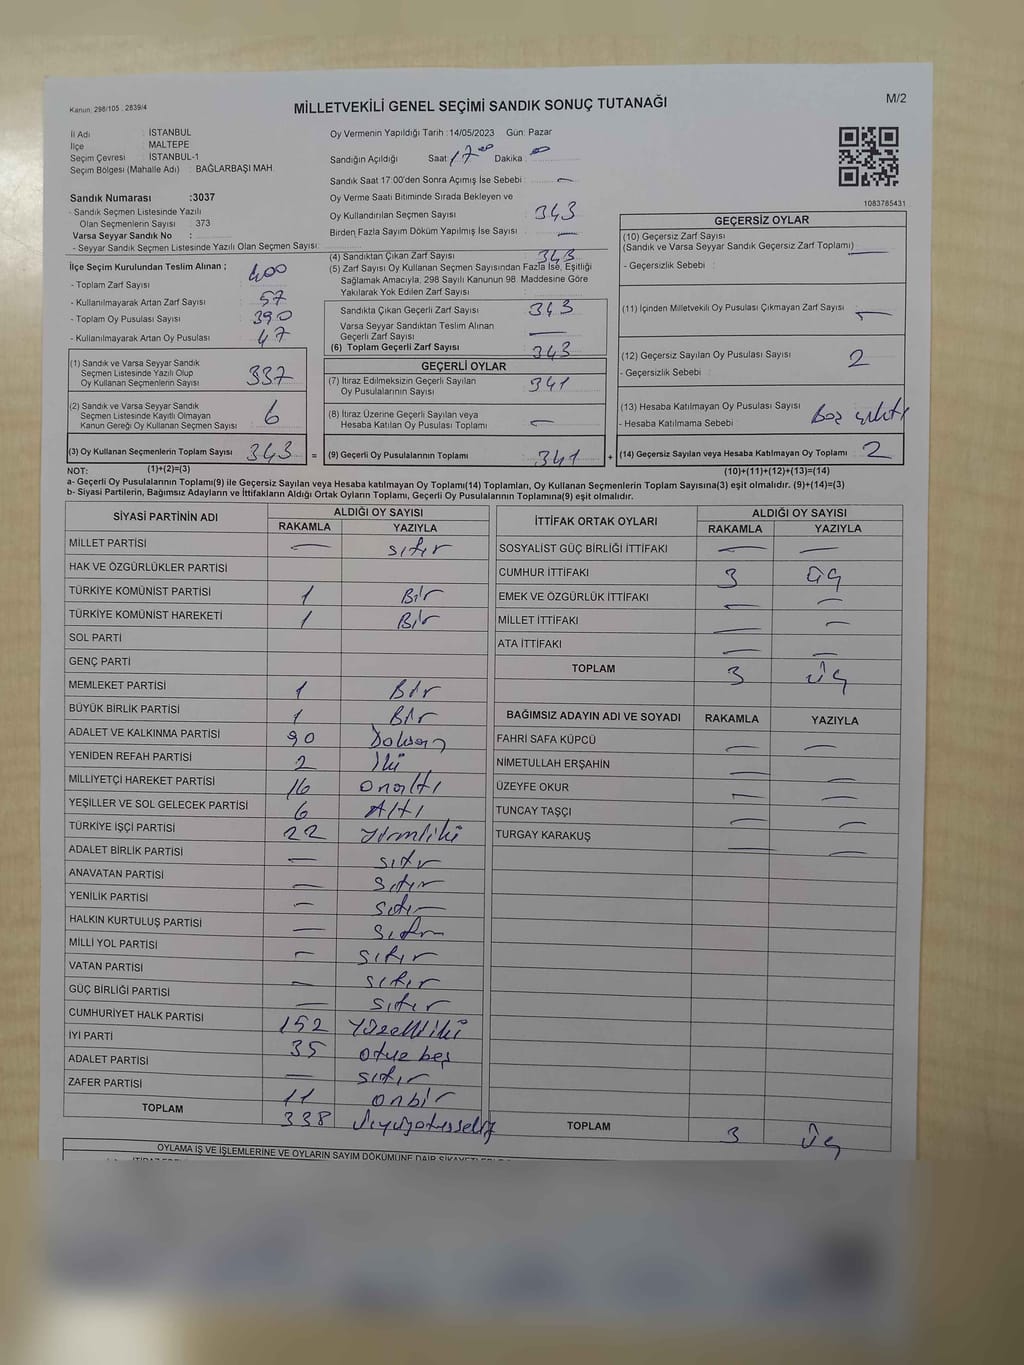 Kanun: 298/105 : 2839/4
MİLLETVEKİLİ GENEL SEÇİMİ SANDIK SONUÇ TUTANAĞI
M/2
İl Adı : İSTANBUL
İlçe : MALTEPE
Seçim Çevresi : İSTANBUL-1
Seçim Bölgesi (Mahalle Adı) : BAĞLARBAŞI MAH.
Oy Vermenin Yapıldığı Tarih : 14/05/2023 Gün: Pazar
Sandığın Açıldığı Saat : 17 00 Dakika : 00
Sandık Saat 17:00'den Sonra Açımış İse Sebebi : —
Oy Verme Saati Bitiminde Sırada Bekleyen ve
Oy Kullandırılan Seçmen Sayısı 343
Birden Fazla Sayım Döküm Yapılmış İse Sayısı —
1083785431
Sandık Numarası :3037
- Sandık Seçmen Listesinde Yazılı
Olan Seçmenlerin Sayısı : 373
Varsa Seyyar Sandık No :
- Seyyar Sandık Seçmen Listesinde Yazılı Olan Seçmen Sayısı:
İlçe Seçim Kurulundan Teslim Alınan ;
- Toplam Zarf Sayısı : 400
- Kullanılmayarak Artan Zarf Sayısı : 57
- Toplam Oy Pusulası Sayısı : 390
- Kullanılmayarak Artan Oy Pusulası : 47
(1) Sandık ve Varsa Seyyar Sandık
Seçmen Listesinde Yazılı Olup
Oy Kullanan Seçmenlerin Sayısı 337
(2) Sandık ve Varsa Seyyar Sandık
Seçmen Listesinde Kayıtlı Olmayan
Kanun Gereği Oy Kullanan Seçmen Sayısı 6
(3) Oy Kullanan Seçmenlerin Toplam Sayısı 343
(4) Sandıktan Çıkan Zarf Sayısı : 343
(5) Zarf Sayısı Oy Kullanan Seçmen Sayısından Fazla İse, Eşitliği
Sağlamak Amacıyla, 298 Sayılı Kanunun 98. Maddesine Göre
Yakılarak Yok Edilen Zarf Sayısı :
Sandıkta Çıkan Geçerli Zarf Sayısı 343
Varsa Seyyar Sandıktan Teslim Alınan
Geçerli Zarf Sayısı —
(6) Toplam Geçerli Zarf Sayısı 343
GEÇERLİ OYLAR
(7) İtiraz Edilmeksizin Geçerli Sayılan
Oy Pusulalarının Sayısı 341
(8) İtiraz Üzerine Geçerli Sayılan veya
Hesaba Katılan Oy Pusulası Toplamı —
= (9) Geçerli Oy Pusulalarının Toplamı 341 +
GEÇERSİZ OYLAR
(10) Geçersiz Zarf Sayısı
(Sandık ve Varsa Seyyar Sandık Geçersiz Zarf Toplamı) —
- Geçersizlik Sebebi :
(11) İçinden Milletvekili Oy Pusulası Çıkmayan Zarf Sayısı —
(12) Geçersiz Sayılan Oy Pusulası Sayısı 2
- Geçersizlik Sebebi :
(13) Hesaba Katılmayan Oy Pusulası Sayısı
- Hesaba Katılmama Sebebi : Boş çıktı
(14) Geçersiz Sayılan veya Hesaba Katılmayan Oy Toplamı 2
NOT: (1)+(2)=(3) (10)+(11)+(12)+(13)=(14)
a- Geçerli Oy Pusulalarının Toplamı(9) ile Geçersiz Sayılan veya Hesaba katılmayan Oy Toplamı(14) Toplamları, Oy Kullanan Seçmenlerin Toplam Sayısına(3) eşit olmalıdır. (9)+(14)=(3)
b- Siyasi Partilerin, Bağımsız Adayların ve İttifakların Aldığı Ortak Oyların Toplamı, Geçerli Oy Pusulalarının Toplamına(9) eşit olmalıdır.
SİYASİ PARTİNİN ADI ALDIĞI OY SAYISI
RAKAMLA YAZIYLA
MİLLET PARTİSİ — sıfır
HAK VE ÖZGÜRLÜKLER PARTİSİ
TÜRKİYE KOMÜNİST PARTİSİ 1 Bir
TÜRKİYE KOMÜNİST HAREKETİ 1 Bir
SOL PARTİ
GENÇ PARTİ
MEMLEKET PARTİSİ 1 Bir
BÜYÜK BİRLİK PARTİSİ 1 Bir
ADALET VE KALKINMA PARTİSİ 90 Doksan
YENİDEN REFAH PARTİSİ 2 İki
MİLLİYETÇİ HAREKET PARTİSİ 16 onaltı
YEŞİLLER VE SOL GELECEK PARTİSİ 6 Altı
TÜRKİYE İŞÇİ PARTİSİ 22 yirmiiki
ADALET BİRLİK PARTİSİ — sıfır
ANAVATAN PARTİSİ — sıfır
YENİLİK PARTİSİ — sıfır
HALKIN KURTULUŞ PARTİSİ — sıfır
MİLLİ YOL PARTİSİ — sıfır
VATAN PARTİSİ — sıfır
GÜÇ BİRLİĞİ PARTİSİ — sıfır
CUMHURİYET HALK PARTİSİ 152 Yüzelliiki
İYİ PARTİ 35 otuz beş
ADALET PARTİSİ — sıfır
ZAFER PARTİSİ 11 onbir
TOPLAM 338
İTTİFAK ORTAK OYLARI ALDIĞI OY SAYISI
RAKAMLA YAZIYLA
SOSYALİST GÜÇ BİRLİĞİ İTTİFAKI — —
CUMHUR İTTİFAKI 3 üç
EMEK VE ÖZGÜRLÜK İTTİFAKI — —
MİLLET İTTİFAKI — —
ATA İTTİFAKI — —
TOPLAM 3 üç
BAĞIMSIZ ADAYIN ADI VE SOYADI RAKAMLA YAZIYLA
FAHRİ SAFA KÜPCÜ — —
NİMETULLAH ERŞAHİN — —
ÜZEYFE OKUR — —
TUNCAY TAŞÇI — —
TURGAY KARAKUŞ — —
TOPLAM 3 üç
OYLAMA İŞ VE İŞLEMLERİNE VE OYLARIN SAYIM DÖKÜMÜNE DAİR